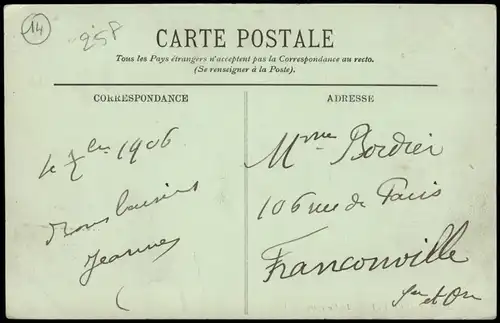 14
258
CARTE POSTALE
Tous les Pays étrangers n'acceptent pas la Correspondance au recto.
(Se renseigner à la Poste).
CORRESPONDANCE
ADRESSE
le 7bre 1906
Bons baisers
Jeanne
Mme Bordier
106 rue de Paris
Franconville
et Oise